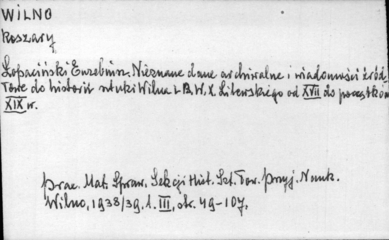 WILNO
Koszary
Łopaciński Euzebiusz. Nieznane dane archiwalne i wiadomości źród-
łowe do historii sztuki Wilna i B. W. X. Litewskiego od XVII do początków
XIX w.
Prac. Mat. Spraw. Sekcji Hist. Szt. Tow. Przyj. Nauk.
Wilno, 1938/39. t. III, str. 49-107.